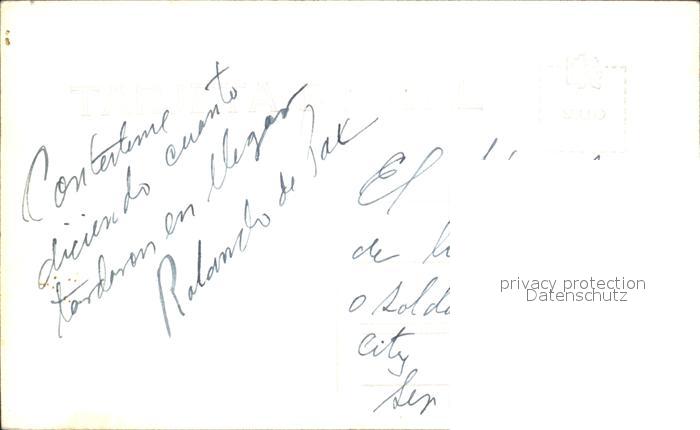 TARJETA POSTAL
Contesteme
diciendo cuanto
tardaron en llegar
Rolando de Pax
El
de
o sold
City
Sep
privacy protection
Datenschutz